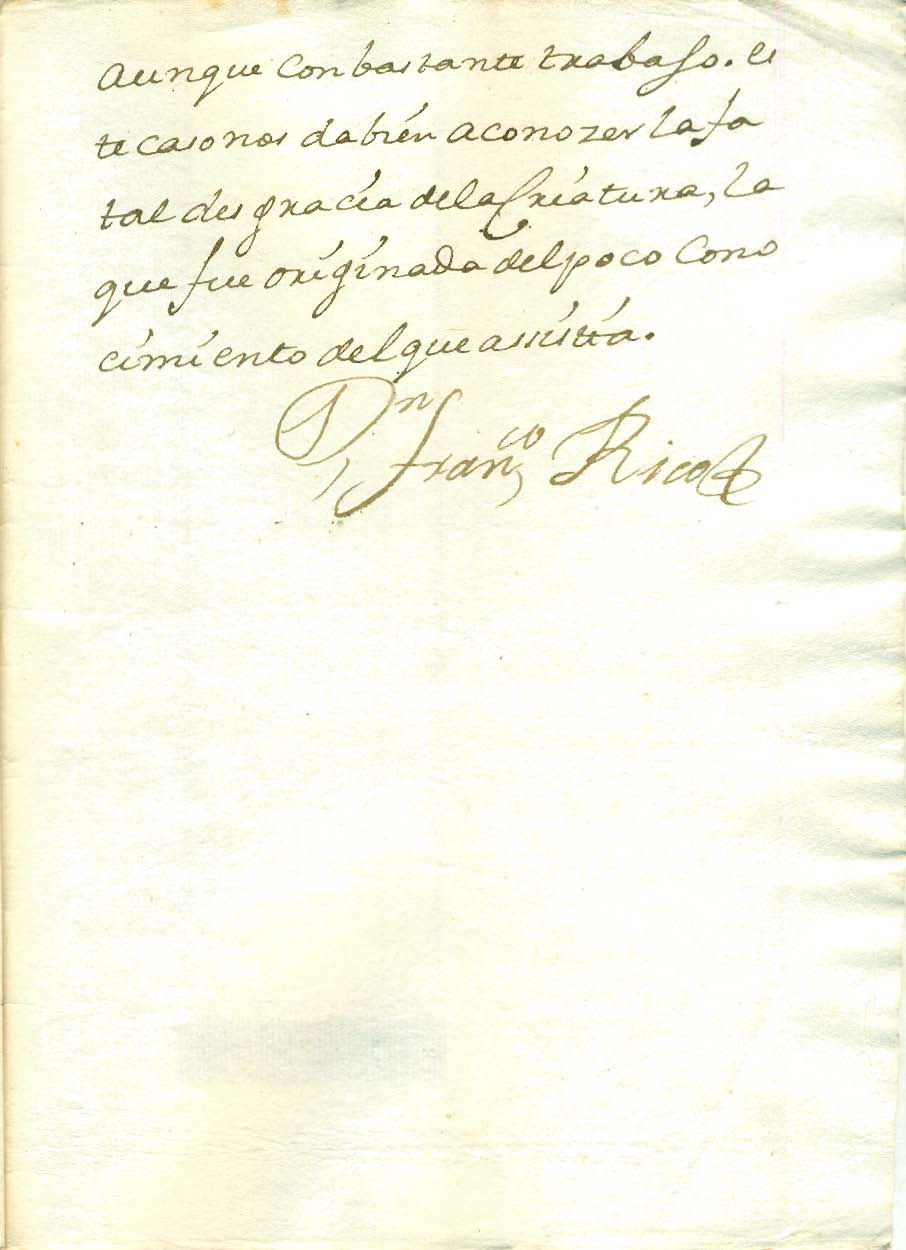 Aunque con bastante trabaJo. es
te caso nos da bién a conozer la fa
tal desgracía de la Críatura, la
que fue orígínada del poco Cono
címíento del que assístía.
Dn Franco Rico